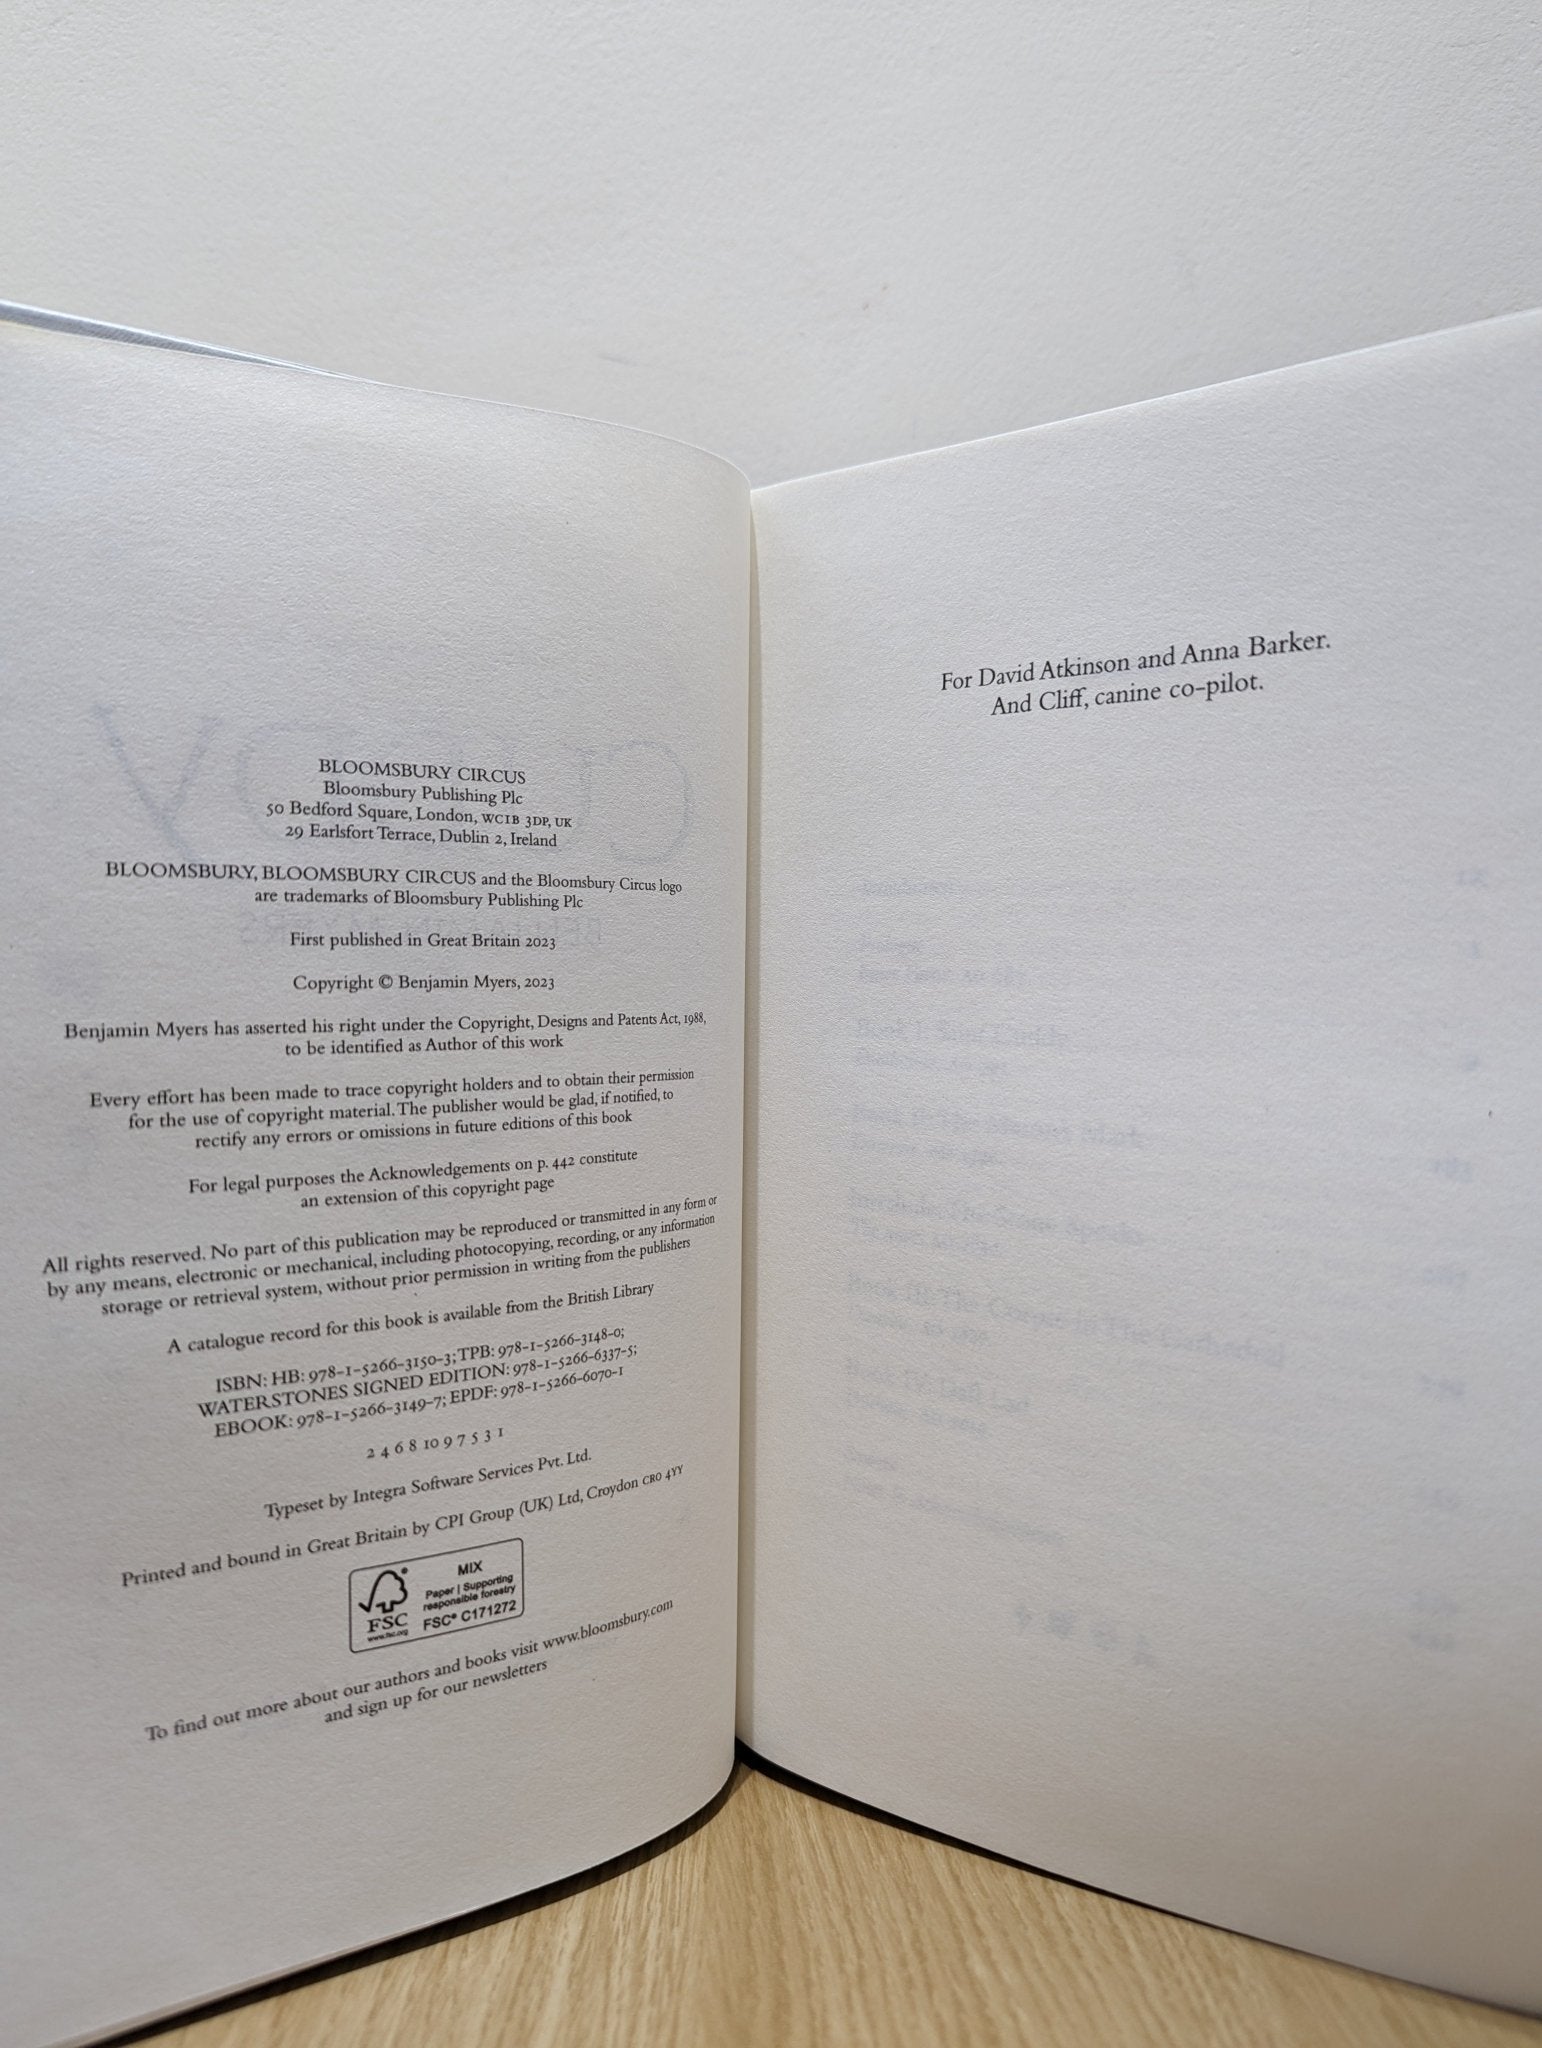 BLOOMSBURY CIRCUS
Bloomsbury Publishing Plc
50 Bedford Square, London, WC1B 3DP, UK
29 Earlsfort Terrace, Dublin 2, Ireland
BLOOMSBURY, BLOOMSBURY CIRCUS and the Bloomsbury Circus logo
are trademarks of Bloomsbury Publishing Plc
First published in Great Britain 2023
Copyright © Benjamin Myers, 2023
Benjamin Myers has asserted his right under the Copyright, Designs and Patents Act, 1988,
to be identified as Author of this work
Every effort has been made to trace copyright holders and to obtain their permission
for the use of copyright material. The publisher would be glad, if notified, to
rectify any errors or omissions in future editions of this book
For legal purposes the Acknowledgements on p. 442 constitute
an extension of this copyright page
All rights reserved. No part of this publication may be reproduced or transmitted in any form or
by any means, electronic or mechanical, including photocopying, recording, or any information
storage or retrieval system, without prior permission in writing from the publishers
A catalogue record for this book is available from the British Library
ISBN: HB: 978-1-5266-3150-3; TPB: 978-1-5266-3148-0;
WATERSTONES SIGNED EDITION: 978-1-5266-6337-5;
EBOOK: 978-1-5266-3149-7; EPDF: 978-1-5266-6070-1
2 4 6 8 10 9 7 5 3 1
Typeset by Integra Software Services Pvt. Ltd.
Printed and bound in Great Britain by CPI Group (UK) Ltd, Croydon CR0 4YY
MIX
Paper | Supporting
responsible forestry
FSC
www.fsc.org
FSC® C171272
To find out more about our authors and books visit www.bloomsbury.com
and sign up for our newsletters
For David Atkinson and Anna Barker.
And Cliff, canine co-pilot.